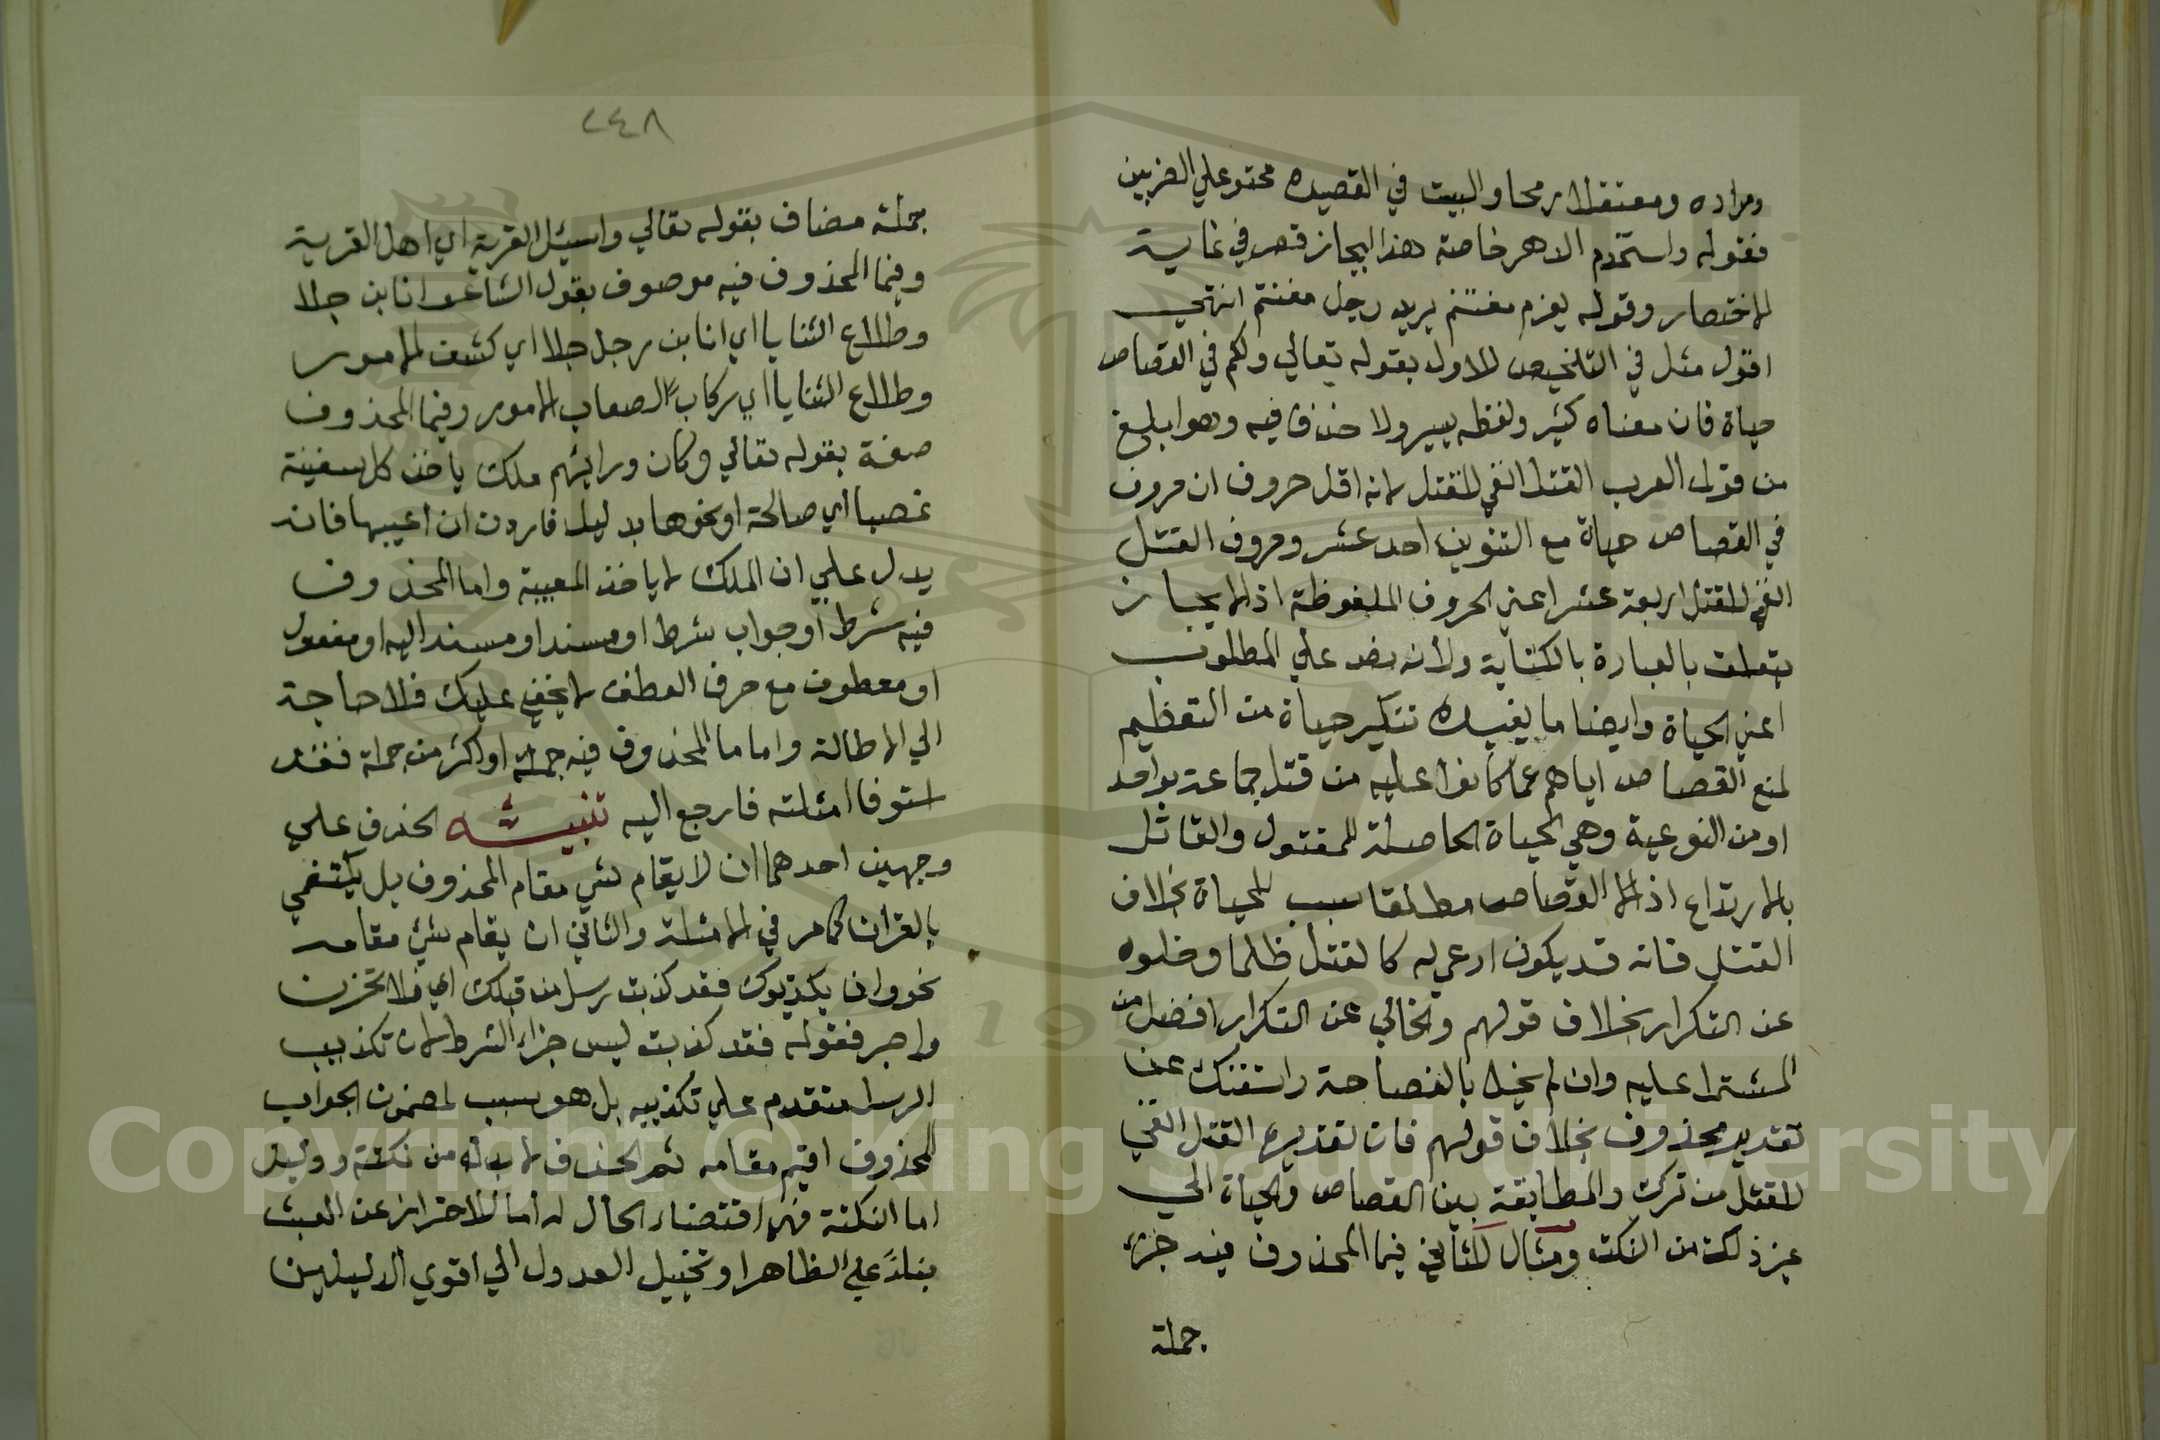 ومراده ومعتقلا رمحا والبيت في القصيده محتو علي الضربين
فقوله واستخدم الدهر خاصة هذا ايجاز قصر في غاية
الاختصار وقوله يعزم مغتنم يريد رجل مغتنم انتهي
اقول مثل في التلخيص للاول بقوله تعالي ولكم في القصاص
حياة فان معناه كثير ولفظه يسير ولا حذف فيه وهو ابلغ
من قول العرب القتل انفي للقتل لانه اقل حروف ان حروف
في القصاص حياة مع التنوين احد عشر وحروف القتل
انفي للقتل اربعة عشر اعني الحروف الملفوظة اذ الايجاز
يتعلق بالعبارة بالكتابة ولأنه نص علي المطلوب
اعني الحياة وايضا ما يفيده تنكير حياة من التعظيم
لمنع القصاص اياهم عما كانوا عليه من قتل جماعة بواحد
او من النوعية وهي الحياة الحاصلة للمقتول والقاتل
بالارتداع اذ القصاص مطلقا سبب للحياة بخلاف
القتل فانه قد يكون ادعي له كالقتل ظلما وخلوه
عن التكرار بخلاف قولهم والخالي عن التكرار افضل من
المشتمل عليه وان لم يخل بالفصاحة واستغنائه عن
تقدير محذوف بخلاف قولهم فان تقديره القتل انفي
للقتل من تركه والمطابقة بين القصاص والحياة الي
غير ذلك من النكت ومثال للثاني فيما المحذوف فيه جزء
جملة
٢٤٨
جملة مضاف بقوله تعالي واسئل القرية اي اهل القرية
وفيما المحذوف فيه موصوف بقول الشاعر انا بن جلا
وطلاع الثنايا اي انا بن رجل جلا اي كشف الامور
وطلاع الثنايا اي ركاب الصعاب الامور وفيما المحذوف
صفة بقوله تعالي وكان ورائهم ملك ياخذ كل سفينة
غصبا اي صالحة او نحوها بدليل فاردت ان اعيبها فانه
يدل علي ان الملك لا ياخذ المعيبة واما المحذوف
فيه شرط أو جواب شرط او مسند او مسند اليه او مفعول
او معطوف مع حرف العطف لا يخفي عليك فلا حاجة
الي الاطالة واما ما المحذوف فيه جملة او اكثر من جملة فقد
استوفا امثلته فارجع اليه تنبيه الحذف علي
وجهين احدهما ان لا يقام شي مقام المحذوف بل يكتفي
بالقران كما مر في الامثلة والثاني ان يقام شي مقامه
نحو وان يكذبوك فقد كذبت رسل من قبلك اي فلا تحزن
واصبر فقوله فقد كذبت ليس جزاء الشرط لان تكذيب
الرسل متقدم علي تكذيبه بل هو سبب لمضمون الجواب
المحذوف اقيم مقامه ثم الحذف لا بد له من نكتة ودليل
اما النكتة فهي اقتضاء الحال له اما للاحتراز عن العبث
بناءً علي الظاهر او تخييل العدول الي اقوي الدليلين
Copyright © King Saud University